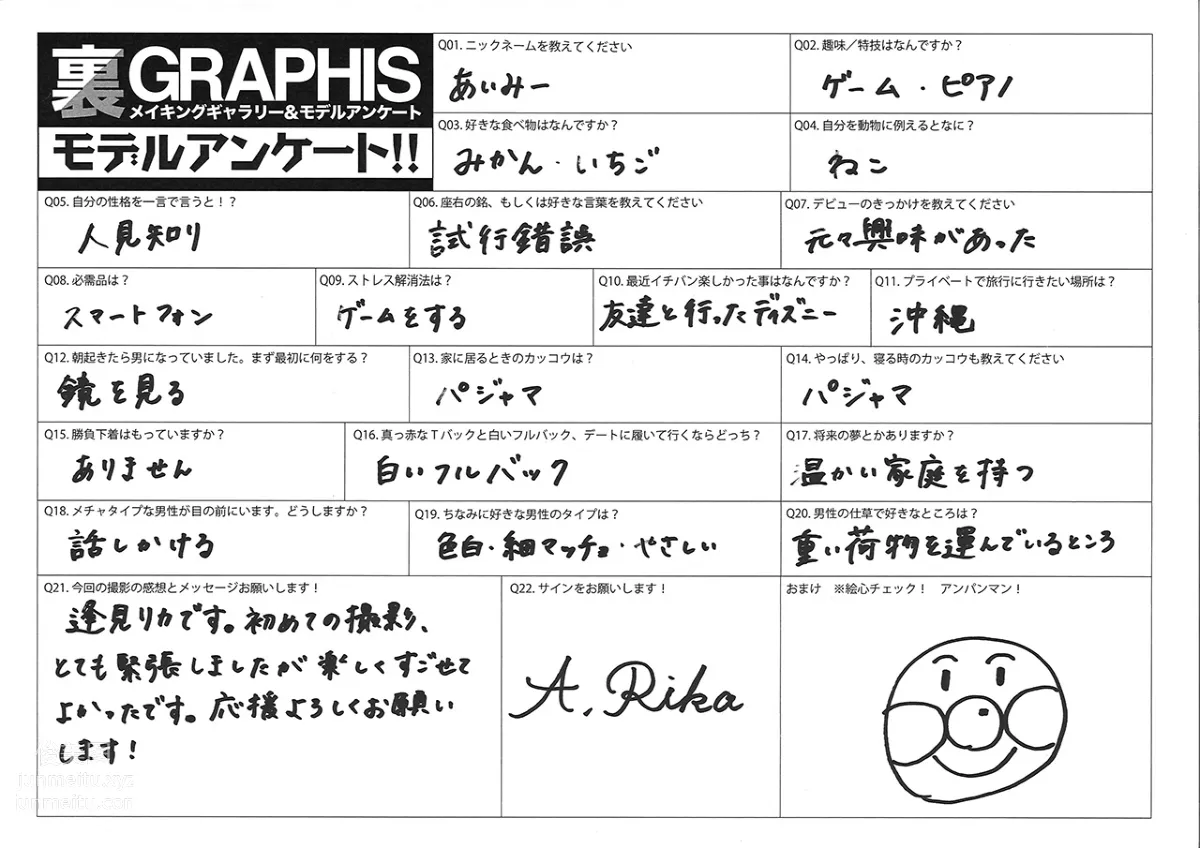 裏GRAPHIS
メイキングギャラリー&モデルアンケート
モデルアンケート!!
Q01. ニックネームを教えてください
あいみー
Q02. 趣味／特技はなんですか？
ゲーム・ピアノ
Q03. 好きな食べ物はなんですか？
みかん・いちご
Q04. 自分を動物に例えるとなに？
ねこ
Q05. 自分の性格を一言で言うと！？
人見知り
Q06. 座右の銘、もしくは好きな言葉を教えてください
試行錯誤
Q07. デビューのきっかけを教えてください
元々興味があった
Q08. 必需品は？
スマートフォン
Q09. ストレス解消法は？
ゲームをする
Q10. 最近イチバン楽しかった事はなんですか？
友達と行ったディズニー
Q11. プライベートで旅行に行きたい場所は？
沖縄
Q12. 朝起きたら男になっていました。まず最初に何をする？
鏡を見る
Q13. 家に居るときのカッコウは？
パジャマ
Q14. やっぱり、寝る時のカッコウも教えてください
パジャマ
Q15. 勝負下着はもっていますか？
ありません
Q16. 真っ赤なTバックと白いフルバック、デートに履いて行くならどっち？
白いフルバック
Q17. 将来の夢とかありますか？
温かい家庭を持つ
Q18. メチャタイプな男性が目の前にいます。どうしますか？
話しかける
Q19. ちなみに好きな男性のタイプは？
色白・細マッチョ・やさしい
Q20. 男性の仕草で好きなところは？
重い荷物を運んでいるところ
Q21. 今回の撮影の感想とメッセージお願いします！
逢見リカです。初めての撮影、
とても緊張しましたが楽しくすごせて
よかったです。応援よろしくお願い
します！
Q22. サインをお願いします！
A. Rika
おまけ　※絵心チェック！　アンパンマン！
iunmeitu.xyz
iunmeitu.com